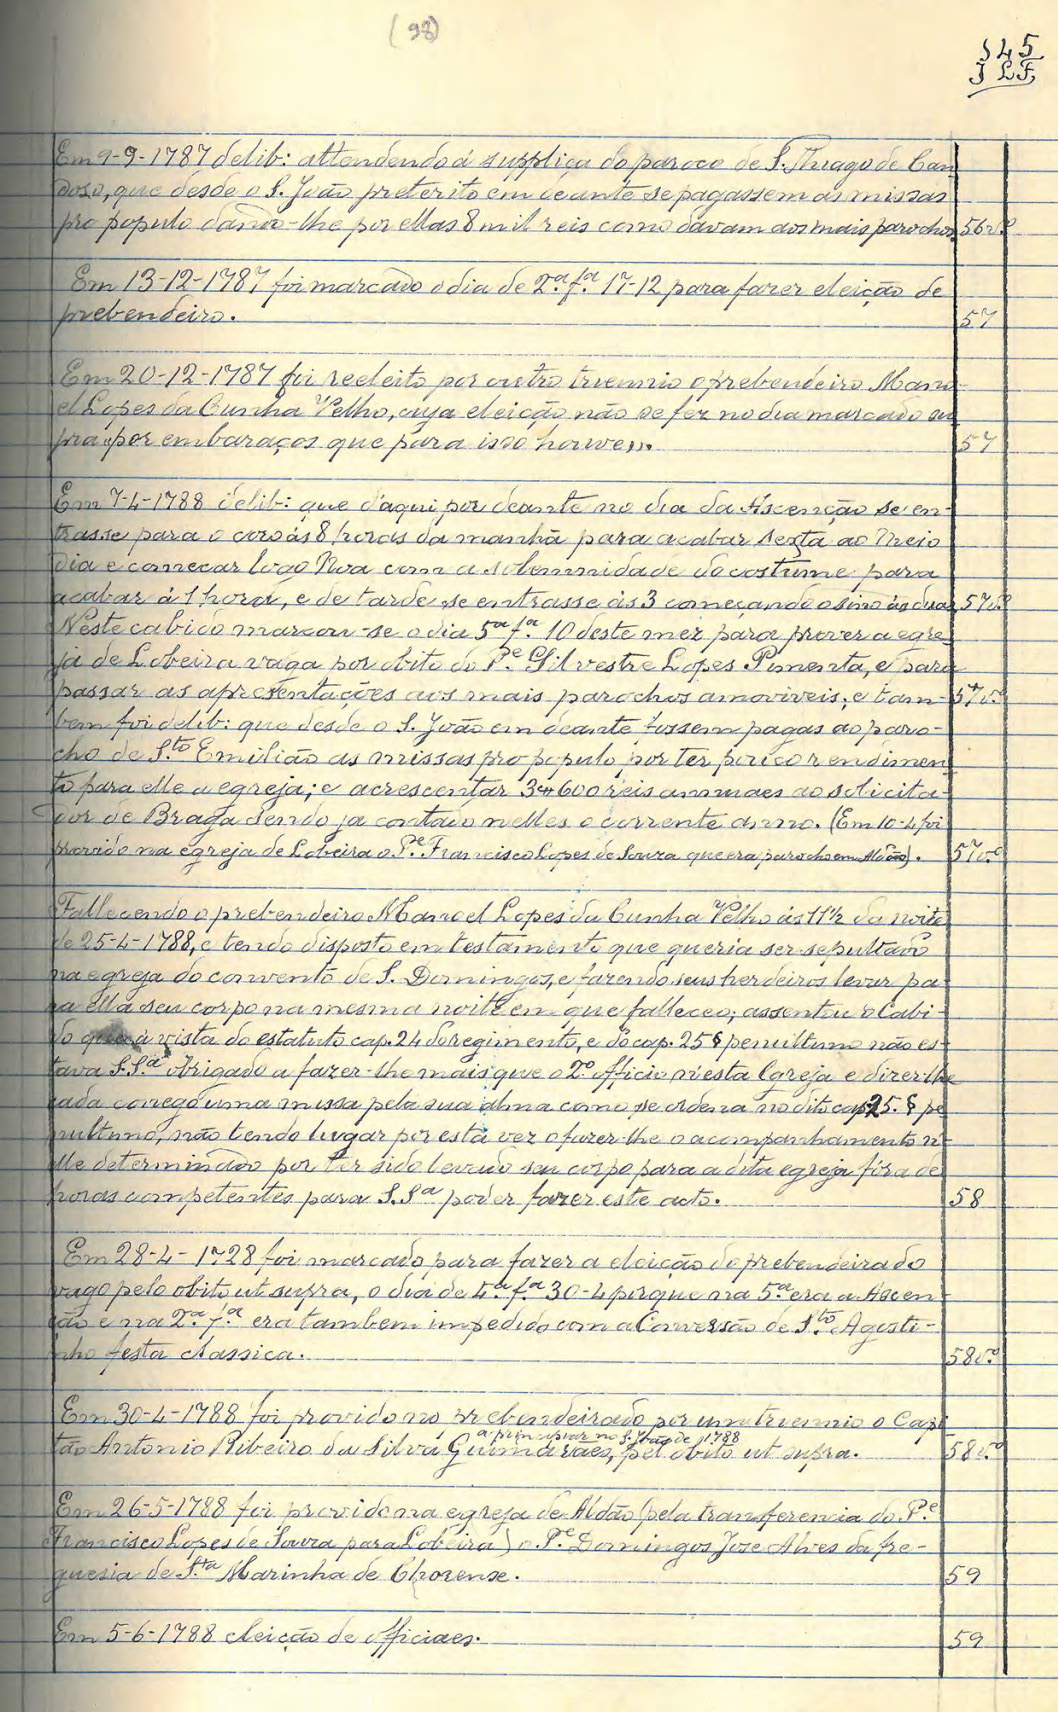 (98)
345
J L F.
Em 9-9-1787 delib: attendendo á suppliça do paroco de S. Thiago de Can
doso, que desde o S. João preterito em deante se pagassem as missas
pro populo dando-lhe por ellas 8 mil reis como davam aos mais parochos 56vº
Em 13-12-1787 foi marcado o dia de 2.ª f.ª 17-12 para fazer eleição de
prebendeiro. 57
Em 20-12-1787 foi reeleito por outro triennio o prebendeiro Mano-
el Lopes da Cunha Velho, cuja eleição não se fez no dia marcado su
pra "por embaraços que para isso houve". 57
Em 7-4-1788 delib: que d'aqui por deante no dia da Ascenção se en-
trasse para o coro ás 8 horas da manhã para acabar sexta ao meio
dia e comecar logo Noa com a solemnidade do costume para
acabar á 1 hora, e de tarde se entrasse ás 3 começando o sino ás duas 57vº
Neste cabido marcou-se o dia 5ª fª. 10 deste mez para prover a egre
ja de Lobeira vaga por obito do P.e Silvestre Lopes Pimenta, e para
passar as apresentações aos mais parochos amoviveis; e tam- 57vº
bem foi delib: que desde o S. João em deante fossem pagas ao paro-
cho de S.to Emilião as missas pro populo por ter pouco rendimen
to para elle a egreja; e acrescentar 3#600 reis annuaes ao solicita-
dor de Braga sendo ja contado nelles o corrente anno. (Em 10-4 foi
provido na egreja de Lobeira o P.e Francisco Lopes de Souza que era parocho em Aldão). 57vº
Fallecendo o prebendeiro Manoel Lopes da Cunha Velho ás 11½ da noite
de 25-4-1788, e tendo disposto em testamento que queria ser sepultado
na egreja do convento de S. Domingos, e fazendo seus herdeiros levar pa-
ra ella seu corpo na mesma noite em que falleceo; assentou o Cabi-
do que á vista do estatuto cap. 24 do regimento, e do cap. 25 § penultimo não es-
tava S. S.ª obrigado a fazer-lhe mais que o 2º officio n'esta Igreja e dizer-lhe
cada conego uma missa pela sua alma como se ordena no dito cap. 25. § pe
nultimo, não tendo lugar por esta vez o fazer-lhe o acompanhamento n'-
elle determinado por ter sido levado seu corpo para a dita egreja fora de
horas competentes para S. S.ª poder fazer este acto. 58
Em 28-4-1728 foi marcado para fazer a eleição do prebendeirado
vago pelo obito ut supra, o dia de 4.ª f.ª 30-4 porque na 5.ª era a Ascen-
ção e na 2.ª f.ª era tambem impedido com a Conversão de S.to Agosti-
nho festa classica. 58vº
Em 30-4-1788 foi provido no prebendeirado por um triennio o Capi
a principiar no S. João de 1788
tão Antonio Ribeiro da Silva Guimarães, pelo obito ut supra. 58vº
Em 26-5-1788 foi provido na egreja de Aldão (pela transferencia do P.e
Francisco Lopes de Souza para Lobeira) o P.e Domingos Jose Alves da fre-
guesia de S.ta Marinha de Chorense. 59
Em 5-6-1788 eleição de officiaes. 59